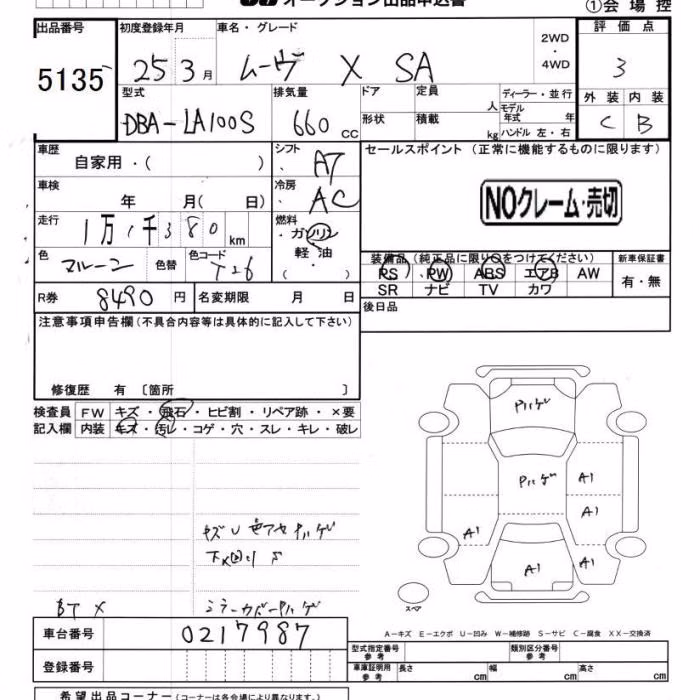 オークション出品申込書
①会場控
出品番号 5135
初度登録年月 25 3月
車名・グレード ムーヴ X SA
2WD・4WD
評価点 3
外装 C 内装 B
型式 DBA-LA100S
排気量 660 CC
ドア 形状
定員 人
積載 kg
ディーラー・並行
モデル年式 年
ハンドル 左・右
車歴 自家用・( )
シフト AT
冷房 AC
セールスポイント (正常に機能するものに限ります)
NOクレーム・売切
車検 年 月( 日)
走行 km
燃料 ・ガソリン 軽油 ( ・ )
色 マルーン 色替 色コード
装備品 (純正品に限り○をつけてください)
PS PW ABS エアB AW
SR ナビ TV カワ
新車保証書 有・無
R券 8490 円 名変期限 月 日
後日品
注意事項申告欄(不具合内容等は具体的に記入して下さい)
修復歴 有 〔箇所 〕
検査員記入欄
FW キズ・飛石・ヒビ割・リペア跡・×要
内装 キズ・汚レ・コゲ・穴・スレ・キレ・破レ
ハゲ
ハゲ A1
A1
A1 A1 A1
スペア
キズ U 色アセ ハゲ
下×回リ S
BT X ミラーカバーハゲ
車台番号 0217987
登録番号
A-キズ E-エクボ U-凹み W-補修跡 S-サビ C-腐食 XX-交換済
型式指定番号 参考 類別区分番号 参考
車庫証明用 参考 長さ cm 幅 cm 高さ cm
希望出品コーナー (コーナーは各会場により異なります。)